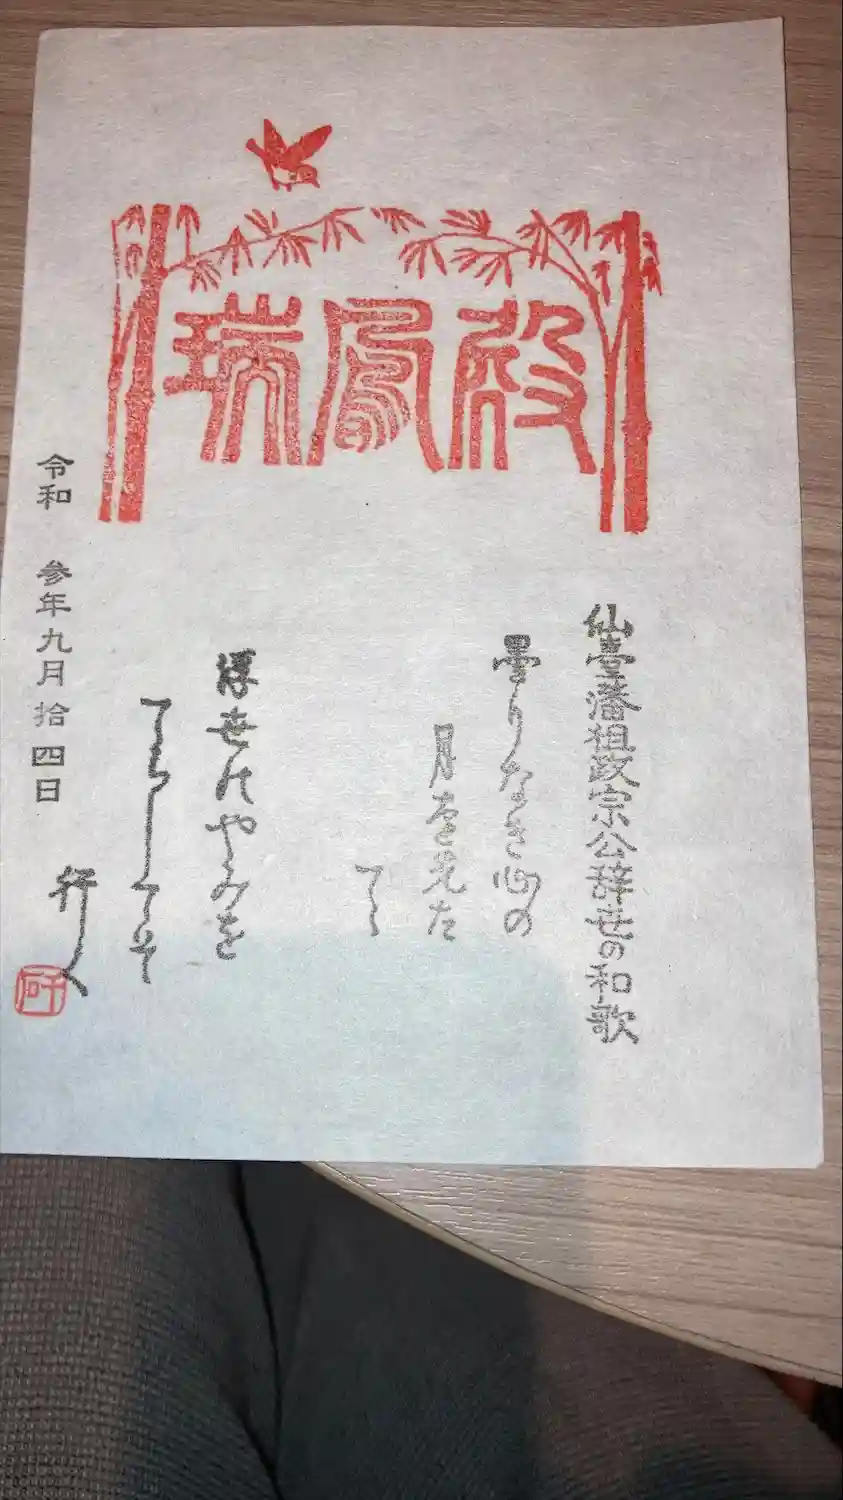 瑞鳳殿
仙臺藩祖政宗公辞世の和歌
曇りなき心の
月を先た
てゝ
浮世のやみを
てらしてそ
行く
令和 参年九月拾四日